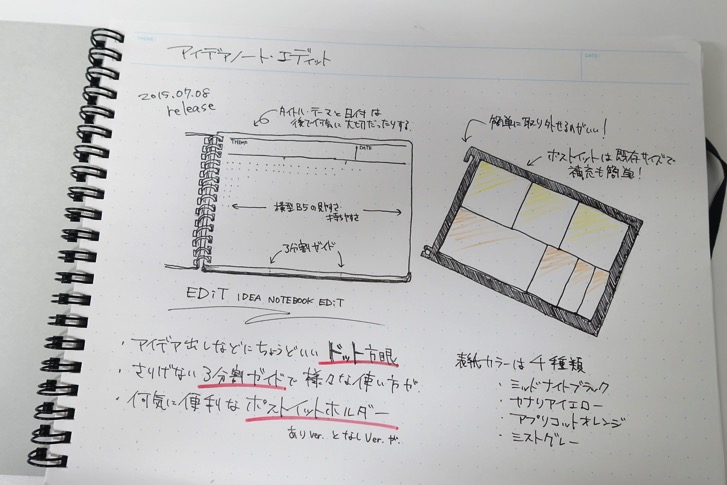 アイデアノート・エディット
DATE
2015.07.08
release
タイトル・テーマと日付は
後で何気に大切だったりする
THEME
DATE
横型B5の見やすさ
持ちやすさ
3分割ガイド
EDiT IDEA NOTEBOOK EDiT
簡単に取り外せるのがいい!
ポストイットは既存サイズで
補充も簡単!
・アイデア出しなどにちょうどいいドット方眼
・さりげない3分割ガイドで様々な使い方が
・何気に便利なポストイットホルダー
ありver.となしver.が.
表紙カラーは4種類
・ミッドナイトブラック
・カナリアイエロー
・アプリコットオレンジ
・ミストグレー